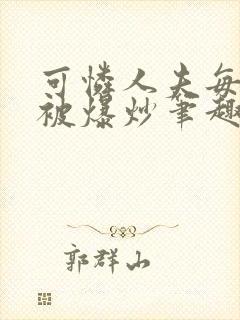 可怜人夫每
被爆炒笔趣
郭群山